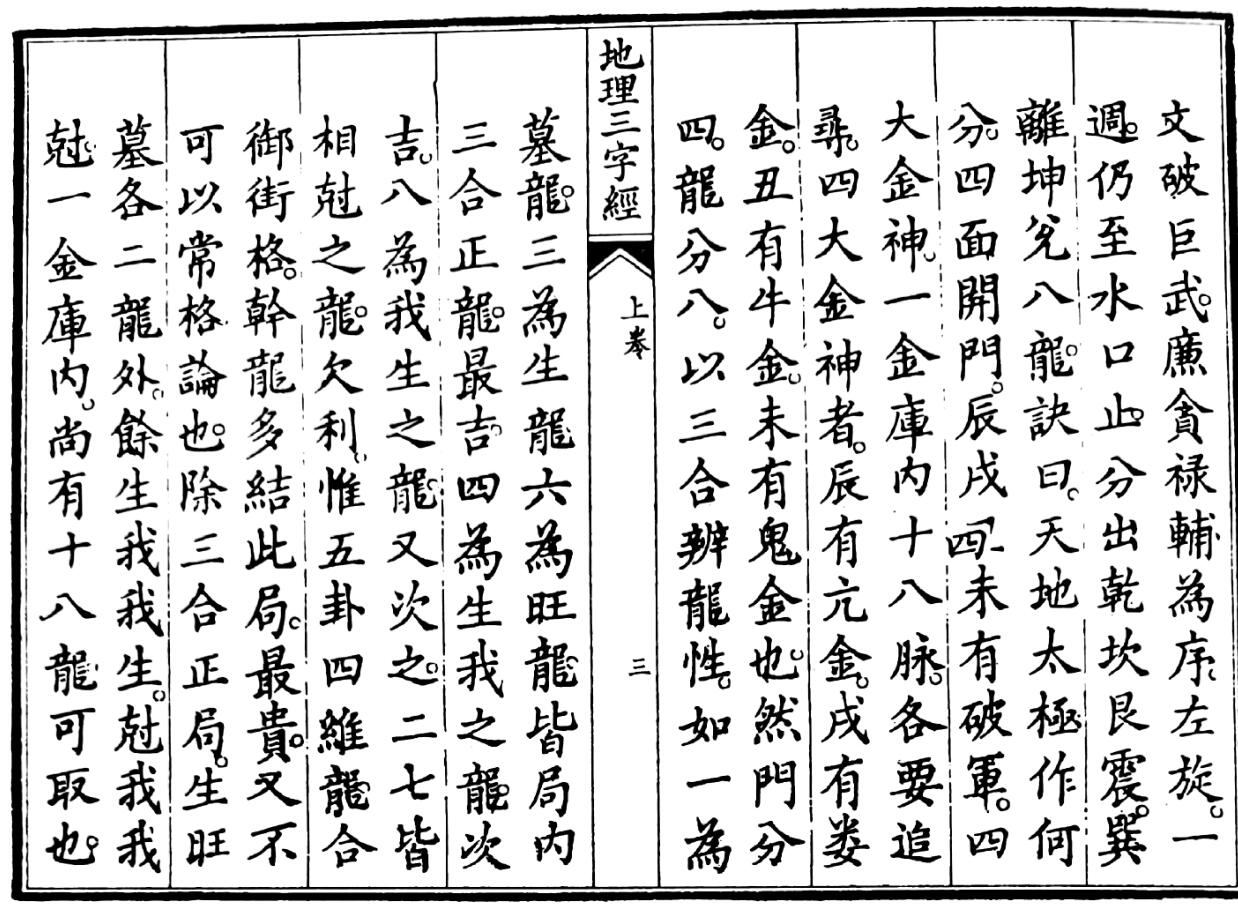 文破巨武。廉貪祿輔為序。左旋。一
週。仍至水口止。分出乾坎艮震。巽
離坤兌八龍。訣曰。天地太極作何
分。四面開門。辰戌四未有破軍。四
大金神。一金庫內十八脉。各要追
尋。四大金神者。辰有亢金。戌有婁
金。丑有牛金。未有鬼金也。然門分
四。龍分八。以三合辨龍性。如一為
地理三字經
上卷
三
墓龍。三為生龍六為旺龍。皆局內
三合正龍。最吉。四為生我之龍。次
吉。八為我生之龍。又次之。二七皆
相尅之龍。欠利。惟五卦四維龍。合
御街格。幹龍多結此局。最貴。又不
可以常格論也。除三合正局。生旺
墓各二龍外。餘生我我生。尅我我
尅。一金庫內。尚有十八龍可取也。